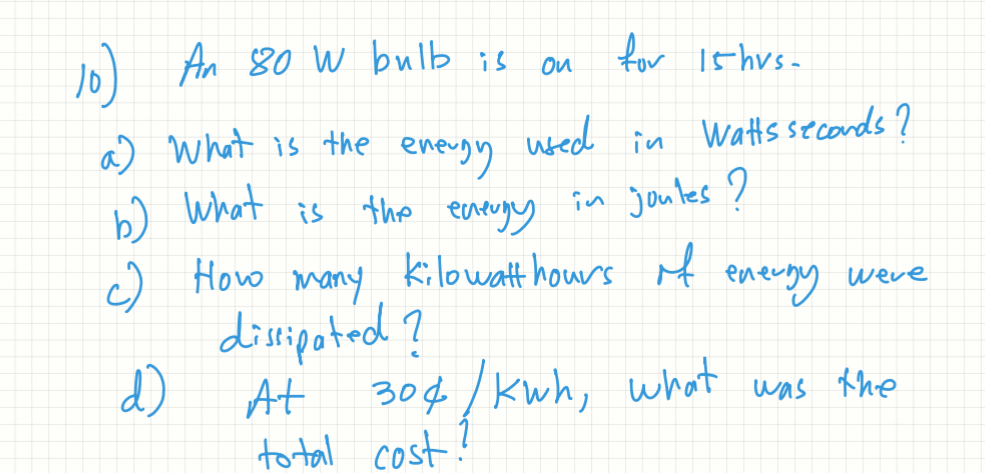 10) An 80 W bulb is on for 15hrs.
a) What is the energy used in Wattsseconds?
b) What is the energy in joules?
c) How many kilowatthours of energy were
dissipated?
d) At 30¢/kwh, what was the
total cost?